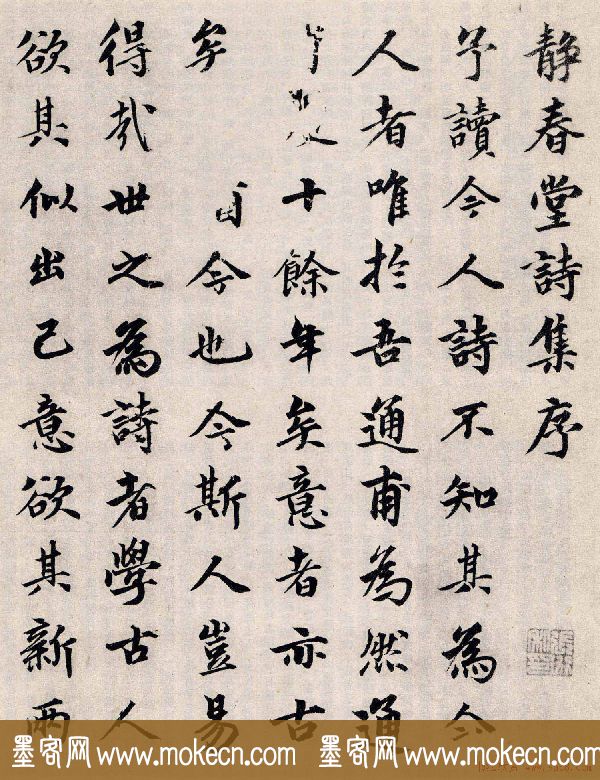 靜春堂詩集序
予讀今人詩不知其為今
人者唯於吾通甫為然通
十餘年矣意者亦古
矣 自今也今斯人豈易
得哉世之為詩者學古人
欲其似出己意欲其新而
墨客网 www.mokecn.com 墨客网 www.mokecn.com